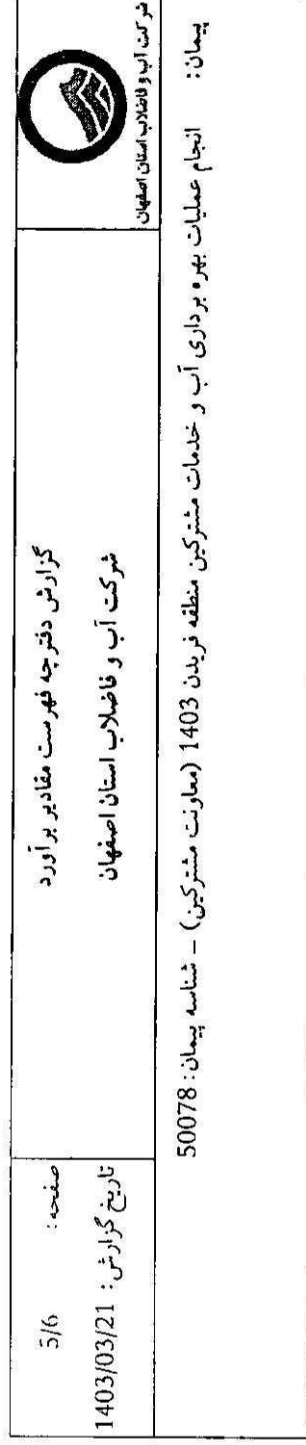 شرکت آب و فاضلاب استان اصفهان
گزارش دفترچه فهرست مقادیر برآورد
شرکت آب و فاضلاب استان اصفهان
صفحه: 5/6
تاریخ گزارش: 1403/03/21
پیمان: انجام عملیات بهره برداری آب و خدمات مشترکین منطقه فریدن 1403 (معاونت مشترکین) - شناسه پیمان: 50078